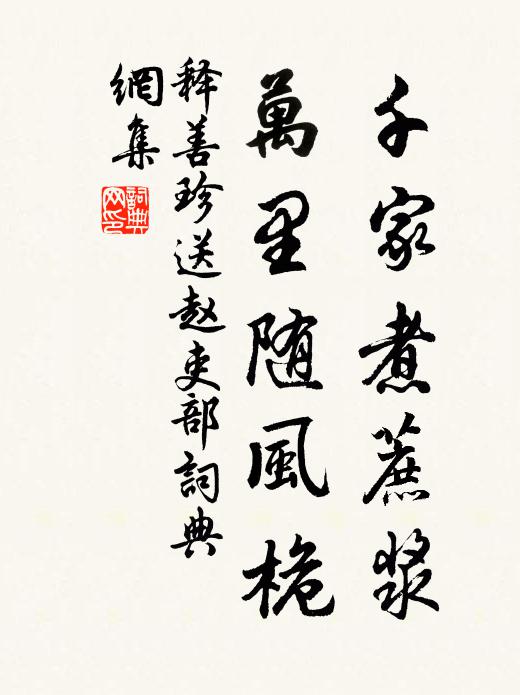 千家煮蔗漿
萬里随風桅
释善珍送赵吏部詞典
網集
詞典
网印